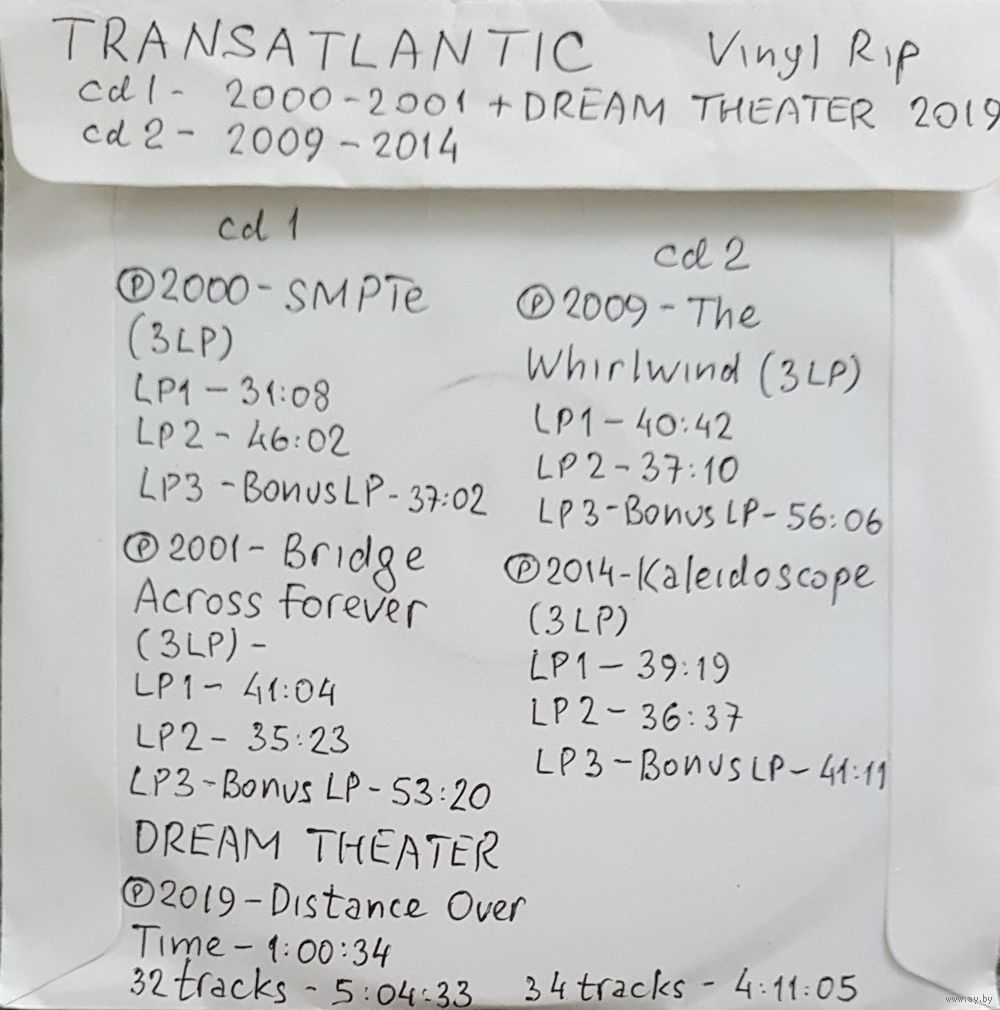 TRANSATLANTIC Vinyl Rip
cd 1 - 2000-2001 + DREAM THEATER 2019
cd 2 - 2009-2014
cd 1
℗2000-SMPTe
(3LP)
LP1 - 31:08
LP2 - 46:02
LP3 - Bonus LP - 37:02
℗2001 - Bridge
Across Forever
(3LP) -
LP1 - 41:04
LP2 - 35:23
LP3-Bonus LP - 53:20
DREAM THEATER
℗2019-Distance Over
Time - 1:00:34
32 tracks - 5:04:33
cd 2
℗2009 - The
Whirlwind (3LP)
LP1 - 40:42
LP2 - 37:10
LP3-Bonus LP - 56:06
℗2014-Kaleidoscope
(3LP)
LP1 - 39:19
LP2 - 36:37
LP3 - Bonus LP - 41:11
34 tracks - 4:11:05
www.ay.by